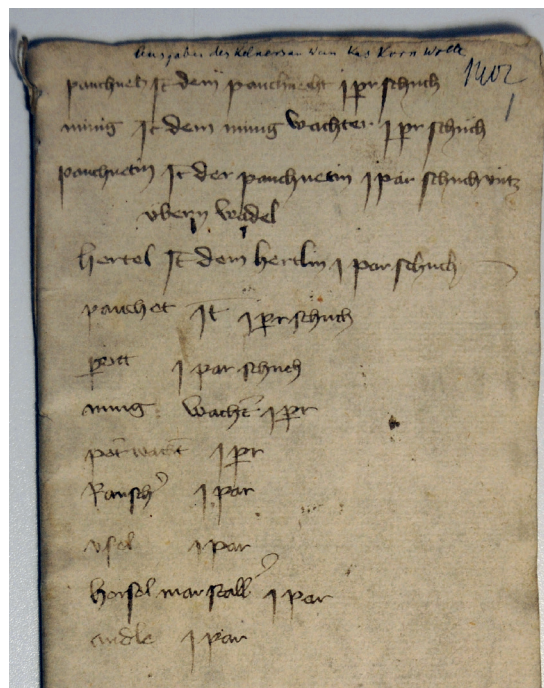 Ausgaben des Kelners an Wein Kas Korn Wolle
1402
1
pauchnet It dem pauchnecht j pr schuch
minig It dem minig wachter j pr schuch
pauchnetin It der pauchnetin j par schuch untz
ubern wadel
hertel It dem hertlin j par schuch
pauchet It j pr schuch
pott j par schuch
minig wacht j pr
pot wacht j pr
Rausch j par
usel j par
horsel marstall j par
andle j par